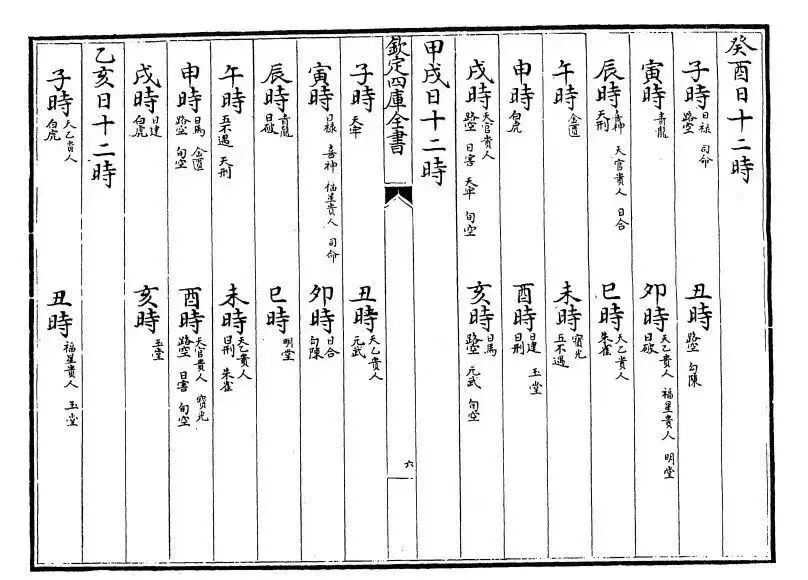 癸酉日十二時
子時 日祿 司命 路空 丑時 路空 勾陳
寅時 青龍 卯時 天乙貴人 福星貴人 明堂 日破
辰時 喜神 天官貴人 日合 天刑 巳時 天乙貴人 朱雀
午時 金匱 未時 寳光 五不遇
申時 白虎 酉時 日建 玉堂 日刑
戌時 天官貴人 路空 日害 天牢 旬空 亥時 日馬 路空 元武 旬空
甲戌日十二時
欽定四庫全書 六
子時 天牢 丑時 天乙貴人 元武
寅時 日祿 喜神 福星貴人 司命 卯時 日合 勾陳
辰時 青龍 日破 巳時 明堂
午時 五不遇 天刑 未時 天乙貴人 日刑 朱雀
申時 日馬 金匱 路空 旬空 酉時 天官貴人 寳光 路空 日害 旬空
戌時 日建 白虎 亥時 玉堂
乙亥日十二時
子時 天乙貴人 白虎 丑時 福星貴人 玉堂